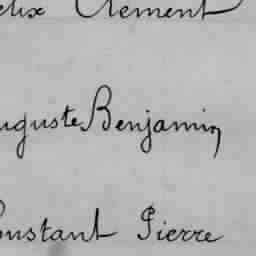 elix Clement
uguste Benjamin
onstant Pierre